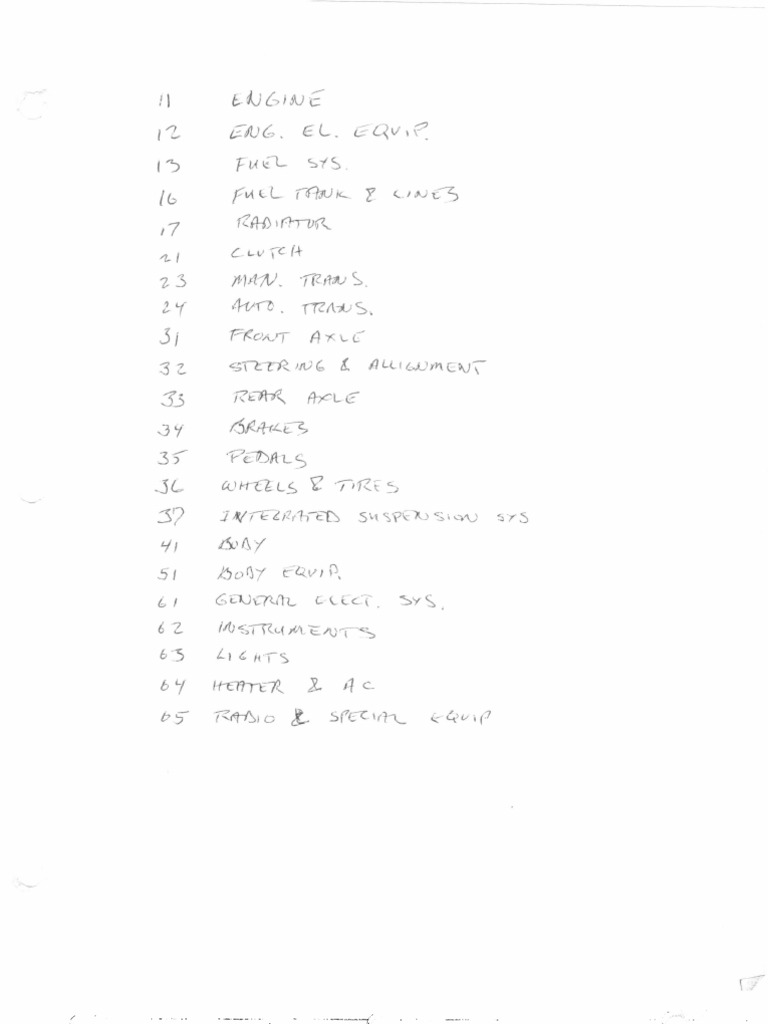 11 ENGINE
12 ENG. EL. EQUIP.
13 FUEL SYS.
16 FUEL TANK & LINES
17 RADIATOR
21 CLUTCH
23 MAN. TRANS.
24 AUTO. TRANS.
31 FRONT AXLE
32 STEERING & ALLIGNMENT
33 REAR AXLE
34 BRAKES
35 PEDALS
36 WHEELS & TIRES
37 INTEGRATED SUSPENSION SYS
41 BODY
51 BODY EQUIP.
61 GENERAL ELECT. SYS.
62 INSTRUMENTS
63 LIGHTS
64 HEATER & AC
65 RADIO & SPECIAL EQUIP